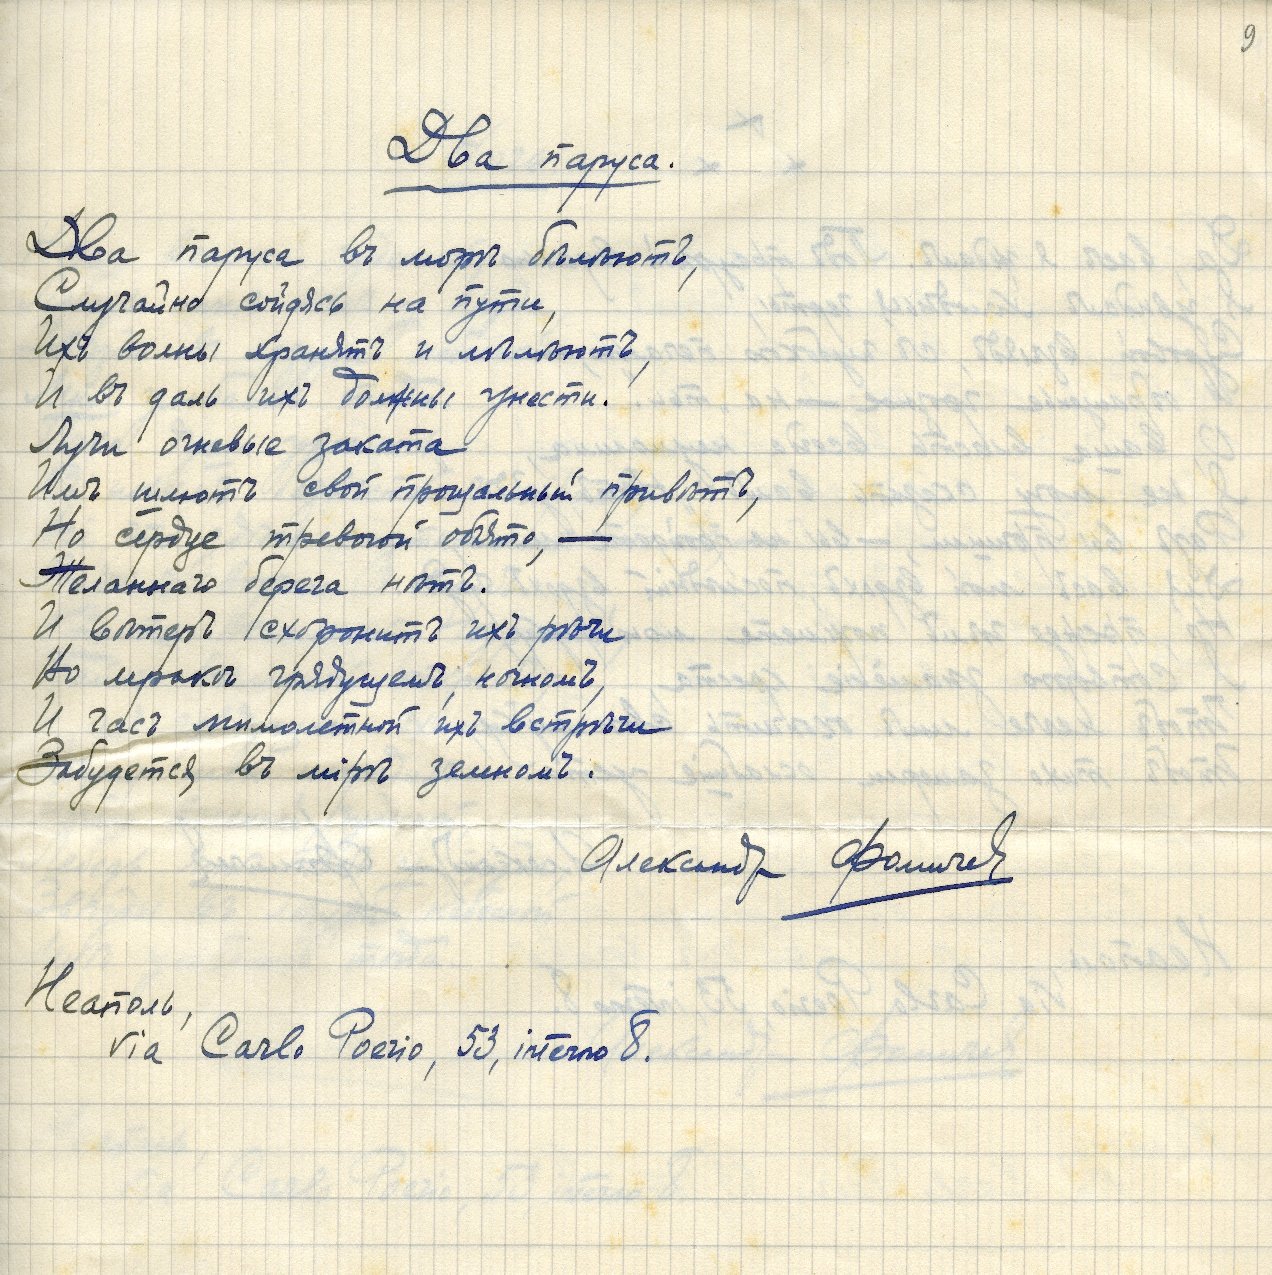 9
Два паруса.
Два паруса въ морѣ бѣлѣютъ,
Случайно сойдясь на пути,
Ихъ волны хранятъ и лѣлѣютъ,
И въ даль ихъ должны унести.
Лучи огневые заката
Имъ шлютъ свой прощальный привѣтъ,
Но сердце тревогой объято, —
Желаннаго берега нѣтъ.
И вѣтеръ схоронитъ ихъ рѣчи
Во мракѣ грядущемъ, ночномъ,
И часъ мимолетной ихъ встрѣчи
Забудется въ мірѣ земномъ.
Александр Фомичев
Неаполь,
Via Carlo Poerio, 53, interno 8.